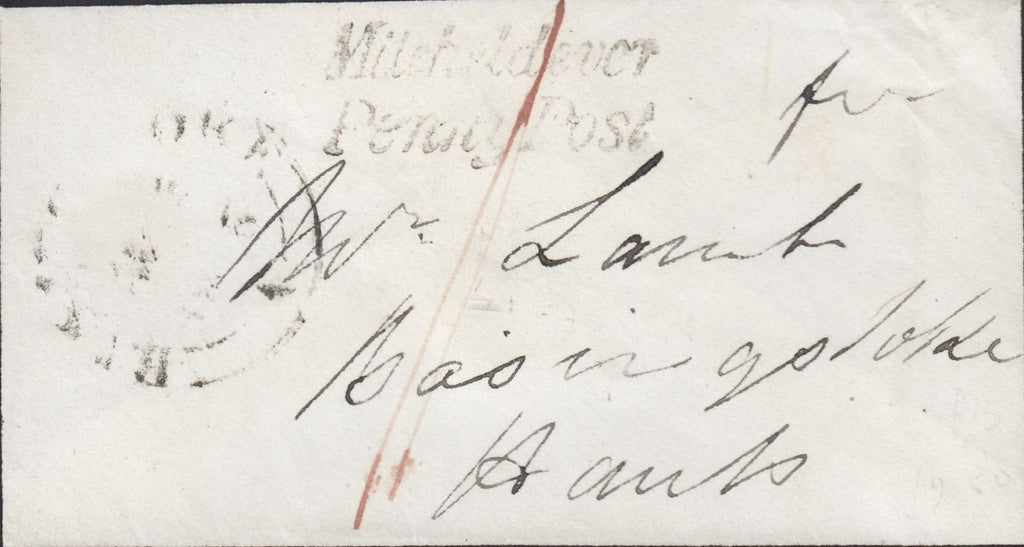 Mitcheldever
Penny Post
Mr Lamb
Basingstoke
Hants